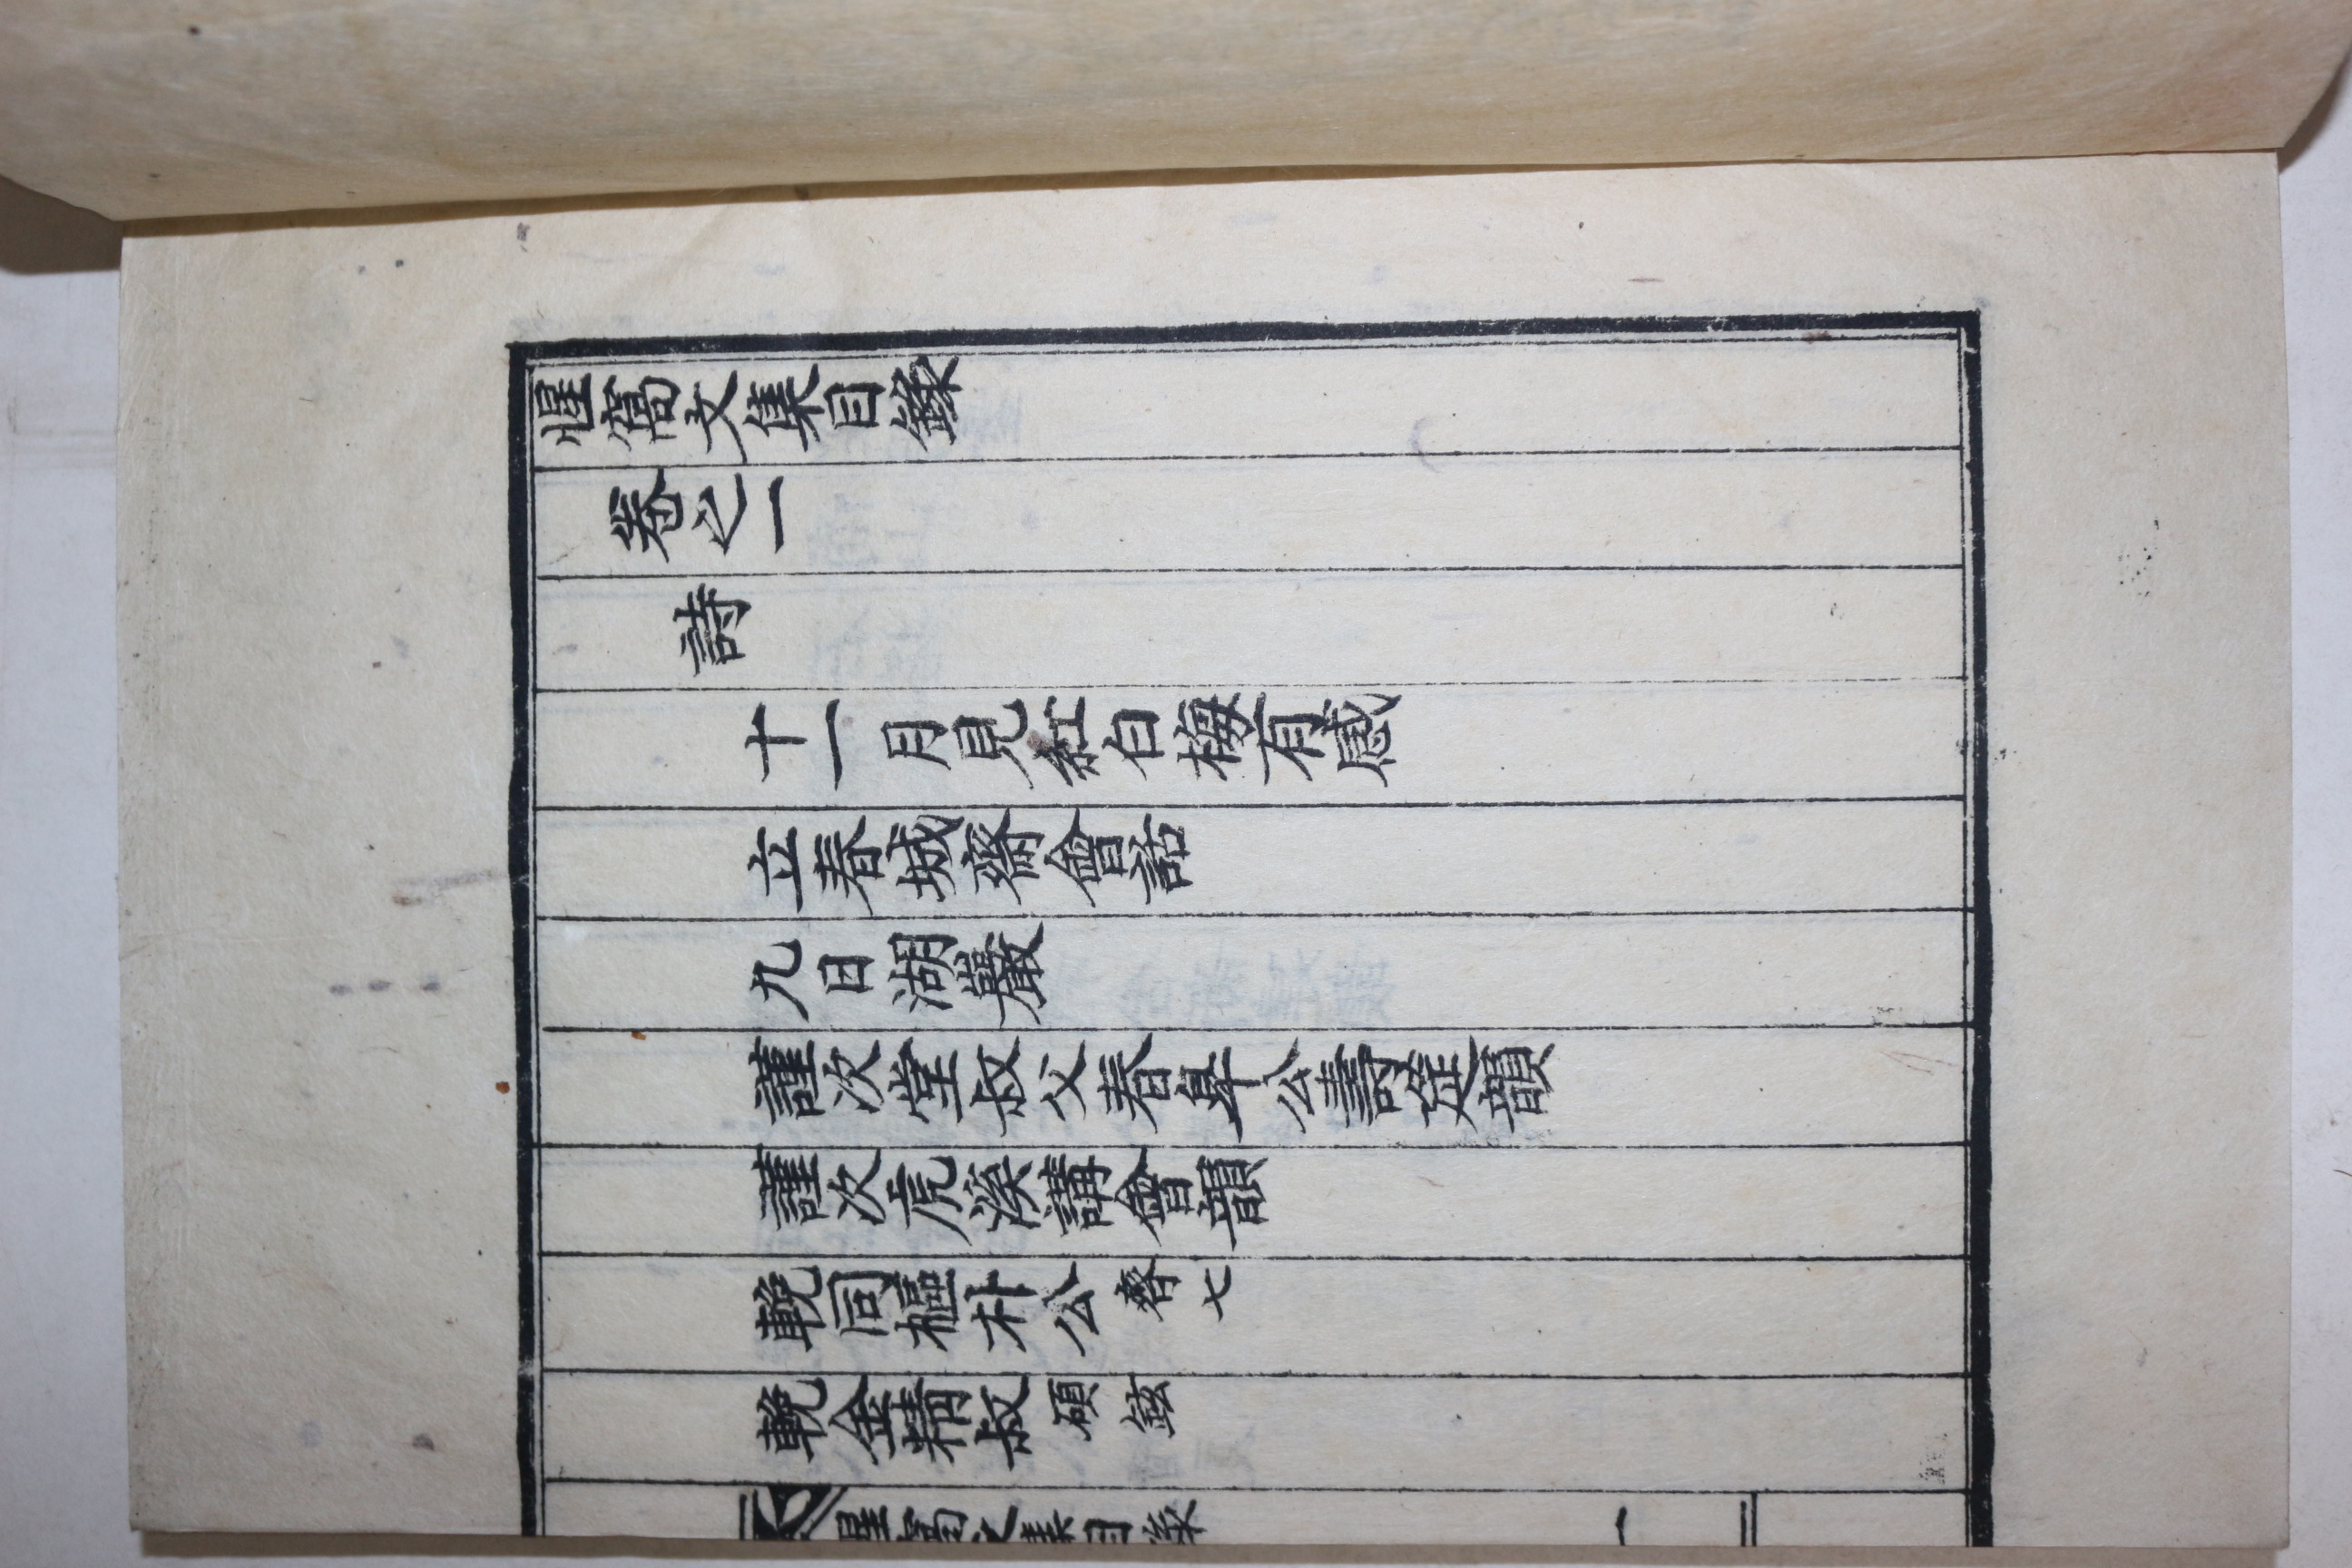 惺窩文集目錄
卷之一
詩
十一月見紅白梅有感
立春城齋會話
九日湖巖
謹次堂叔父春皐公壽筵韻
謹次虎溪講會韻
輓同樞朴公齊七
輓金精叔碩鉉
惺窩文集目錄 一